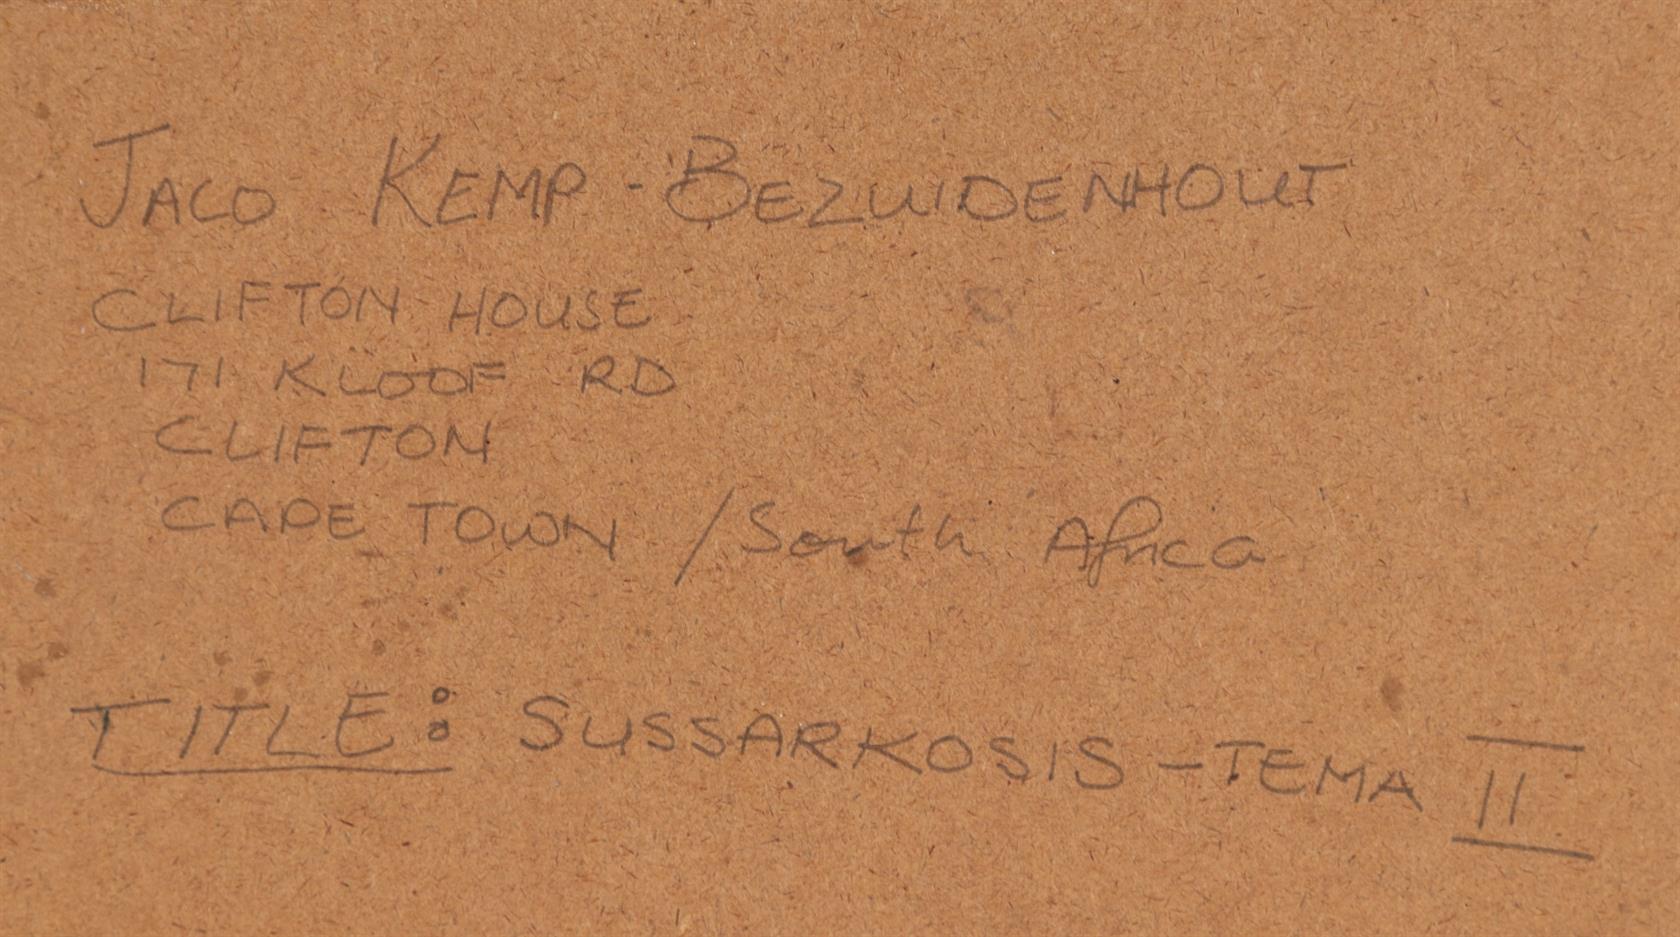 JACO KEMP - BEZUIDENHOUT
CLIFTON HOUSE
171 KLOOF RD
CLIFTON
CAPE TOWN / South Africa
TITLE: SUSSARKOSIS - TEMA II